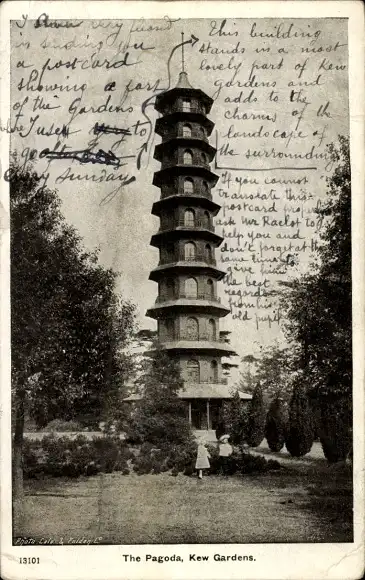 is sending you
a postcard
showing a part
of the Gardens
where I used
to
go
every Sunday
This building
stands in a most
lovely part of Kew
Gardens and
adds to the
charms of the
landscape of
the surrounding
If you cannot
translate this
postcard
ask Mr
help you and
don't forget at the
same time to
give him
the best
regards
from his
old pupil
Photo. Co.
13101
The Pagoda, Kew Gardens.